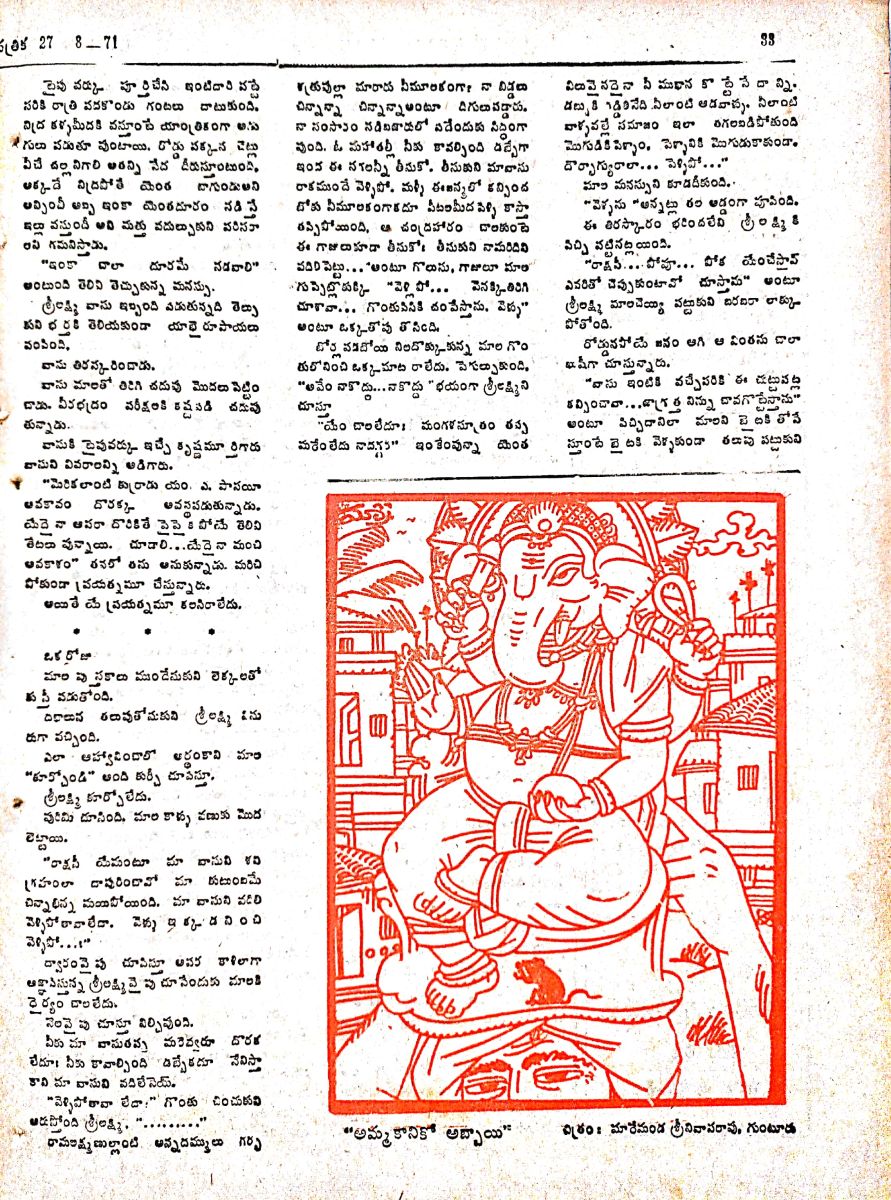 పత్రిక 27 8—71
33
టైపు వర్కు పూర్తిచేసి ఇంటిదారి పట్టే
సరికి రాత్రి పదకొండు గంటలు దాటుకుంది.
నిద్ర కళ్ళమీదకి వస్తూంటే యాంత్రికంగా అడు
గులు పడుతూ వుంటాయి. రోడ్డు పక్కన చెట్లు
వీచే చల్లనిగాలి అతన్ని సేద దీరుస్తూంటుంది.
అక్కడే నిద్రపోతే యెంత బాగుండుఅని
అన్పించీ అబ్బ ఇంకా యెంతదూరం నడిస్తే
ఇల్లు వస్తుందీ అని మత్తు వదుల్చుకుని పరిసరా
లని గమనిస్తాడు.
"ఇంకా చాలా దూరమే నడవాలి"
అంటుంది తెలివి తెచ్చుకున్న మనస్సు.
శ్రీలక్ష్మి వాసు ఇబ్బంది పడుతున్నది తెల్సు
కుని భర్తకి తెలియకుండా యాభై రూపాయలు
పంపింది.
వాసు తిరస్కరించాడు.
వాసు మాలతో తిరిగి చదువు మొదలుపెట్టిం
చాడు. వీరభద్రం పరీక్షలకి కష్టపడి చదువు
తున్నాడు.
వాసుకి టైపువర్కు ఇచ్చే కృష్ణమూర్తిగారు
వాసుని వివరాలన్ని అడిగారు.
"మెరికలాంటి కుర్రాడు యం. ఎ. పాసయీ
అవకాశం దొరక్క అవస్థపడుతున్నాడు.
యేదైనా ఆసరా దొరికితే పైపైకి పోయే తెలివి
తేటలు వున్నాయి. చూడాలి...యేదైనా మంచి
అవకాశం" తనలో తను అనుకున్నాడు. మరిచి
పోకుండా ప్రయత్నమూ చేస్తున్నారు.
అయితే యే ప్రయత్నమూ కలసిరాలేదు.
* * *
ఒకరోజు
మాల పుస్తకాలు ముందేసుకుని లెక్కలతో
కుస్తీ పడుతోంది.
దభాలున తలుపుతోసుకుని శ్రీలక్ష్మి విసు
రుగా వచ్చింది.
ఎలా ఆహ్వానించాలో అర్థంకాని మాల
"కూర్చోండి" అంది కుర్చీ చూపిస్తూ.
శ్రీలక్ష్మి కూర్చోలేదు.
వురిమి చూసింది. మాల కాళ్ళు వణుకు మొద
లెట్టాయి.
"రాక్షసీ యేమంటూ మా వాసుని శని
గ్రహంలా దాపురించావో మా కుటుంబమే
చిన్నాభిన్న మయిపోయింది. మా వాసుని వదిలి
వెళ్ళిపోతావాలేదా. వెళ్ళు ఇక్కడనించి
వెళ్ళిపో...!"
ద్వారంవైపు చూపిస్తూ అపర కాళిలాగా
ఆజ్ఞాపిస్తున్న శ్రీలక్ష్మివైపు చూసేందుకు మాలకి
ధైర్యం చాలలేదు.
నేలవైపు చూస్తూ నిల్చివుంది.
నీకు మా వాసుతప్ప మరెవ్వరూ దొరక
లేదూ! నీకు కావాల్సింది డబ్బేకదూ నేనిస్తా
కాని మా వాసుని వదిలేసెయ్.
"వెళ్ళిపోతావా లేదా!" గొంతు చించుకుని
అడుస్తోంది శ్రీలక్ష్మి. "........."
రామలక్ష్మణుల్లాంటి అన్నదమ్ములు గర్భ
శత్రువుల్లా మారారు నీమూలకంగా! నా బిడ్డలు
చిన్నాన్నా చిన్నాన్నాఅంటూ దిగులుపడ్డారు.
నా సంసారం నడిబజారులో పడేందుకు సిద్ధంగా
వుంది. ఓ మహాతల్లీ నీకు కావల్సింది డబ్బేగా
ఇంద ఈ నగలన్నీ తీసుకో. తీసుకుని మావాసు
రాకముందే వెళ్ళిపో. మళ్ళీ ఈజన్మలో కన్పించ
బోకు నీమూలకంగాకదూ పీటలమీదపెళ్ళి కాస్తా
తప్పిపోయింది. ఆ చంద్రహారం చాలకుంటే
ఈ గాజులుకూడా తీసుకో! తీసుకుని నామరిదిని
వదిలిపెట్టు...' అంటూ గొలుసు, గాజులూ మాల
గుప్పెట్లోకుక్కి "వెళ్లిపో... వెనక్కితిరిగి
చూశావా... గొంతుపిసికి చంపేస్తాను. వెళ్ళు"
అంటూ ఒక్కతోపు తోసింది.
బోర్లపడబోయి నిలదొక్కుకున్న మాల గొం
తులోనించి ఒక్కమాట రాలేదు. పెగుల్చుకుంది.
"అవేం నాకొద్దు...నాకొద్దు" భయంగా శ్రీలక్ష్మిని
చూస్తూ
"యేం చాలలేదూ! మంగళసూత్రం తప్ప
మరేంలేదు నాదగ్గర" ఇంకేంవున్నా యెంత
విలువైనదైనా నీ ముఖాన కొట్టేసేదాన్ని.
డబ్బుకి గడ్డితినేది నీలాంటి ఆడవాళ్ళు. నీలాంటి
వాళ్ళవల్లే సమాజం ఇలా తగలబడిపోతుంది
మొగుడికిపెళ్ళాం, పెళ్ళానికి మొగుడుకాకుండా.
దౌర్భాగ్యురాలా... పెళ్ళిపో..."
మాల మనస్సుని కూడదీకుంది.
"వెళ్ళను "అన్నట్లు తల అడ్డంగా వూపింది.
ఈ తిరస్కారం భరించలేని శ్రీలక్ష్మికి
పిచ్చి పట్టినట్లయింది.
"రాక్షసీ... పోవూ... పోక యేంచేస్తావ్
ఎవరితో చెప్పుకుంటావో చూస్తాను" అంటూ
శ్రీలక్ష్మి మాలచెయ్యి పట్టుకుని బరబరా లాక్కు
పోతోంది.
రోడ్డునపోయే జనం ఆగి ఆ వింతను చాలా
ఖుషీగా చూస్తున్నారు.
"వాసు ఇంటికి వచ్చేసరికి ఈ చుట్టుపట్ల
కన్పించావా...జాగ్రత్త నిన్ను చావగొట్టేస్తాను"
అంటూ పిచ్చిదానిలా మాలని బైటకి తోసే
స్తూంటే బైటకి వెళ్ళకుండా తలుపు పట్టుకుని
"అమ్మకానికో అబ్బాయి"
చిత్రం: మారేమండ శ్రీనివాసరావు, గుంటూరు